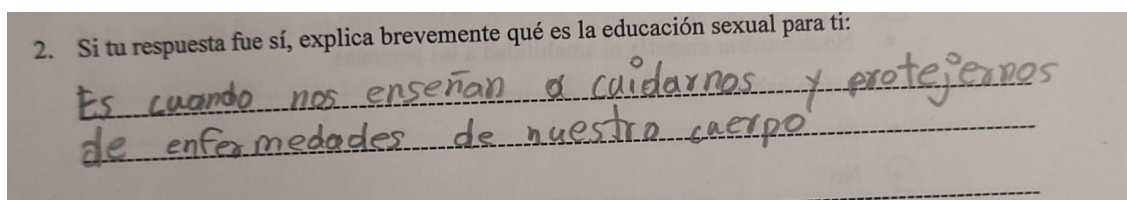 2. Si tu respuesta fue sí, explica brevemente qué es la educación sexual para ti:
Es cuando nos enseñan a cuidarnos y protejernos
de enfermedades de nuestro cuerpo